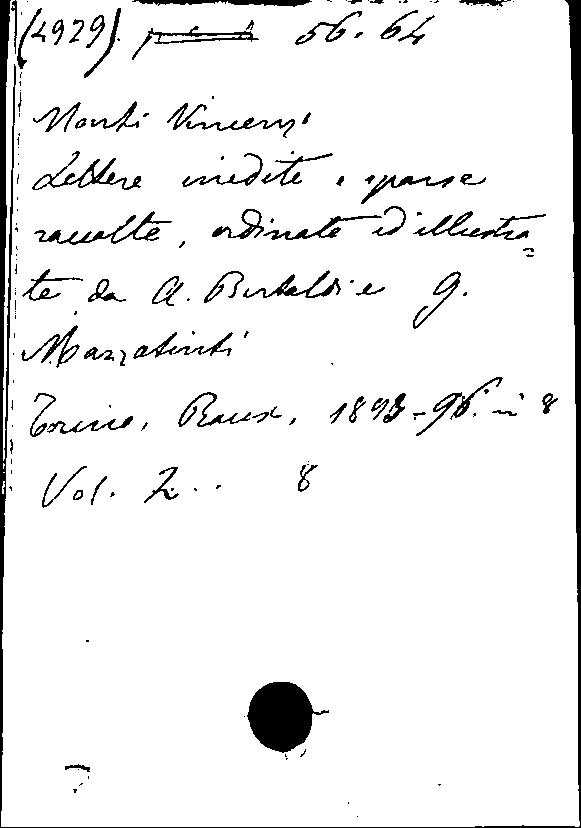 (4929) 56.64
Monti Vincenzo
Lettere inedite e sparse
raccolte, ordinate ed illustra=
te da A. Bertoldi e G.
Mazzatinti
Torino, Roux, 1893-96. in 8
Vol. 2.. 8